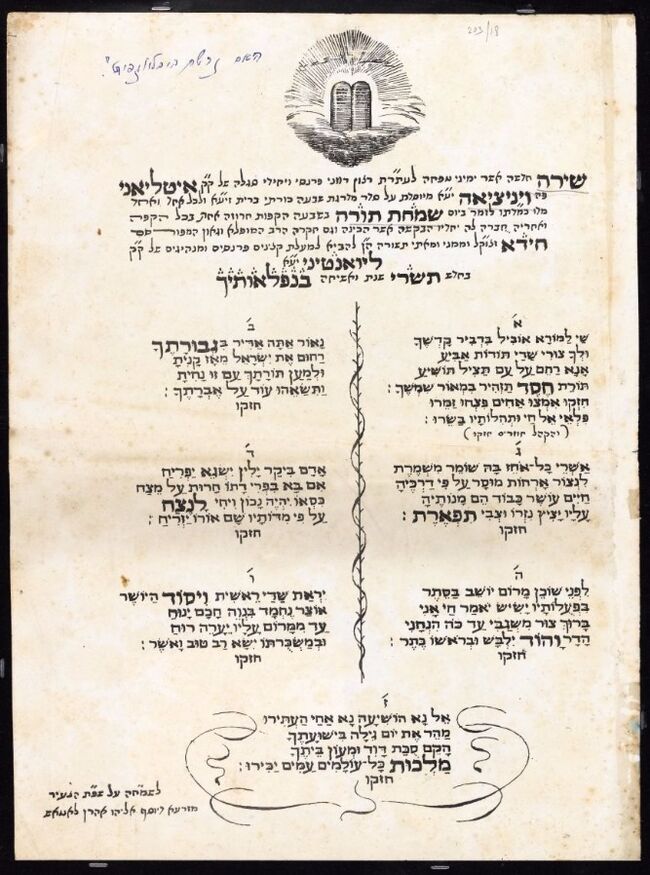 203/18
האם
שירה חדשה אשר ימיני טפחה לעתרת רצון רמני פרנסי ויחידי סגלה של ק״ק איטליאני
פה ויניציאה יע״א מיוסדת על סדר מדרגת שבעה כורתי ברית זיע״א ולכל אחד ואחד
מלו כמדתו לומר ביום שמחת תורה בשבעה הקפות חרוזה אחת בכל הקפה
ואחריה חברה לה יחדיו הבקשה אשר הכינה וגם חקרה הרב המופלא וגאון המפור׳
חידא זצוק״ל וממני ומאתי תשורה הן להביא למעלת קצינים פרנסים ומנהיגים של ק״ק
ליואנטיני יע״א
בחדש תשרי שנת ואשיחה בנפלאותיך
א׳
שַׁי לַמּוֹרָא אוֹבִיל בִּדְבִיר קָדְשֶׁךָ
וּלְךָ צוּרִי שַׁדַּי תּוֹדוֹת אַבִּיעַ
אָנָּא רַחֵם עַל עַם תַּצִּיל תּוֹשִׁיעַ
תּוֹרַת חֶסֶד תַּזְהִיר בִּמְאוֹר שִׁמְשֶׁךָ :
חִזְקוּ אִמְצוּ אַחִים פִּצְחוּ זַמֵּרוּ
פִּלְאֵי אֵל חַי וּתְהִלּוֹתָיו בַּשֵּׂרוּ :
( והקהל חוזרים חזקו )
ב׳
נָאוֹר אַתָּה אַדִּיר בִּגְבוּרָתֶךָ
רַחוּם אֶת יִשְׂרָאֵל מֵאָז קָנִיתָ
וּלְמַעַן תּוֹרָתְךָ עַם זוּ נָחִיתָ
וַתִּשָּׂאֵהוּ עוֹד עַל אֶבְרָתֶךָ :
חזקו
ג׳
אַשְׁרֵי כָּל־אֹחֵז בָּהּ שׁוֹמֵר מִשְׁמֶרֶת
לִנְצוֹר אָרְחוֹת מוּסָר עַל פִּי דְרָכֶיהָ
חַיִּים עוֹשֶׁר כָּבוֹד הֵם מְנוֹתֶיהָ
עָלָיו יָצִיץ נִזְרוֹ וּצְבִי תִפְאֶרֶת :
חזקו
ד׳
אָדָם בִּיקָר יָלִין יִשְׂגֶּא יַפְרִיחַ
אִם בָּא בִּפְרִי דָתוֹ חָרוּת עַל מֵצַח
כִּסְאוֹ יִהְיֶה נָכוֹן וִיחִי לָנֶצַח
עַל פִּי מִדּוֹתָיו שָׁם אוֹרוֹ יַזְרִיחַ :
חזקו
ה׳
לִפְנֵי שׁוֹכֵן מָרוֹם יוֹשֵׁב בַּסֵּתֶר
בִּפְעֻלּוֹתָיו יָשִׂישׂ יֹאמַר חַי אָנִי
בָּרוּךְ צוּר מִשְׂגַּבִּי עַד כֹּה הִנְחָנִי
הָדָר וָהוֹד יִלְבַּשׁ וּבְרֹאשׁוֹ כֶתֶר :
חזקו
ו׳
יִרְאַת שַׁדַּי רֵאשִׁית וִיסוֹד הַיּוֹשֶׁר
אוֹצָר נֶחְמָד בִּנְוֵה חָכָם יָנוּחַ
עַד מִמָּרוֹם עָלָיו יֵעָרֶה רוּחַ
וּבְמַשְׂכֻּרְתּוֹ יִשָּׂא רַב טוּב וָאֹשֶׁר :
חזקו
ז׳
אֵל נָא הוֹשִׁיעָה נָא אַחַי הַעְתִּירוּ
מַהֵר אֶת יוֹם גִּילָה בִּישׁוּעָתֶךָ
הָקֵם סֻכַּת דָּוִד וּמְעוֹן בֵּיתֶךָ
מַלְכוּת כָּל־עוֹלָמִים עַמִּים יַכִּירוּ :
חזקו
לשמחה על שפת הצעיר
מזרעא דיוסף אליהו אהרן לאטאש